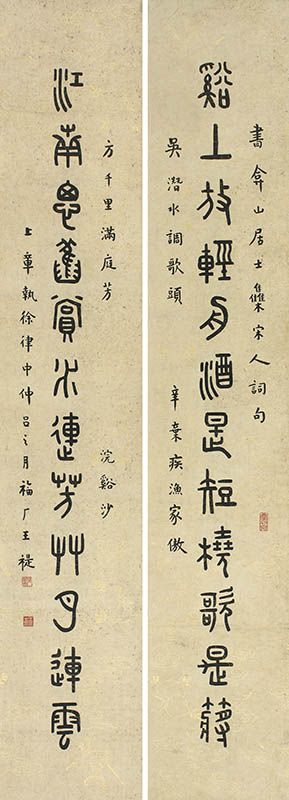 書弇山居士雧宋人詞句
谿上放輕舟酒是短橈歌是槳
吳潛水調歌頭 辛棄疾漁家傲
方千里滿庭芳 浣谿沙
江南思舊賞水連芳艸月連雲
上章執徐律中仲呂之月福厂王禔